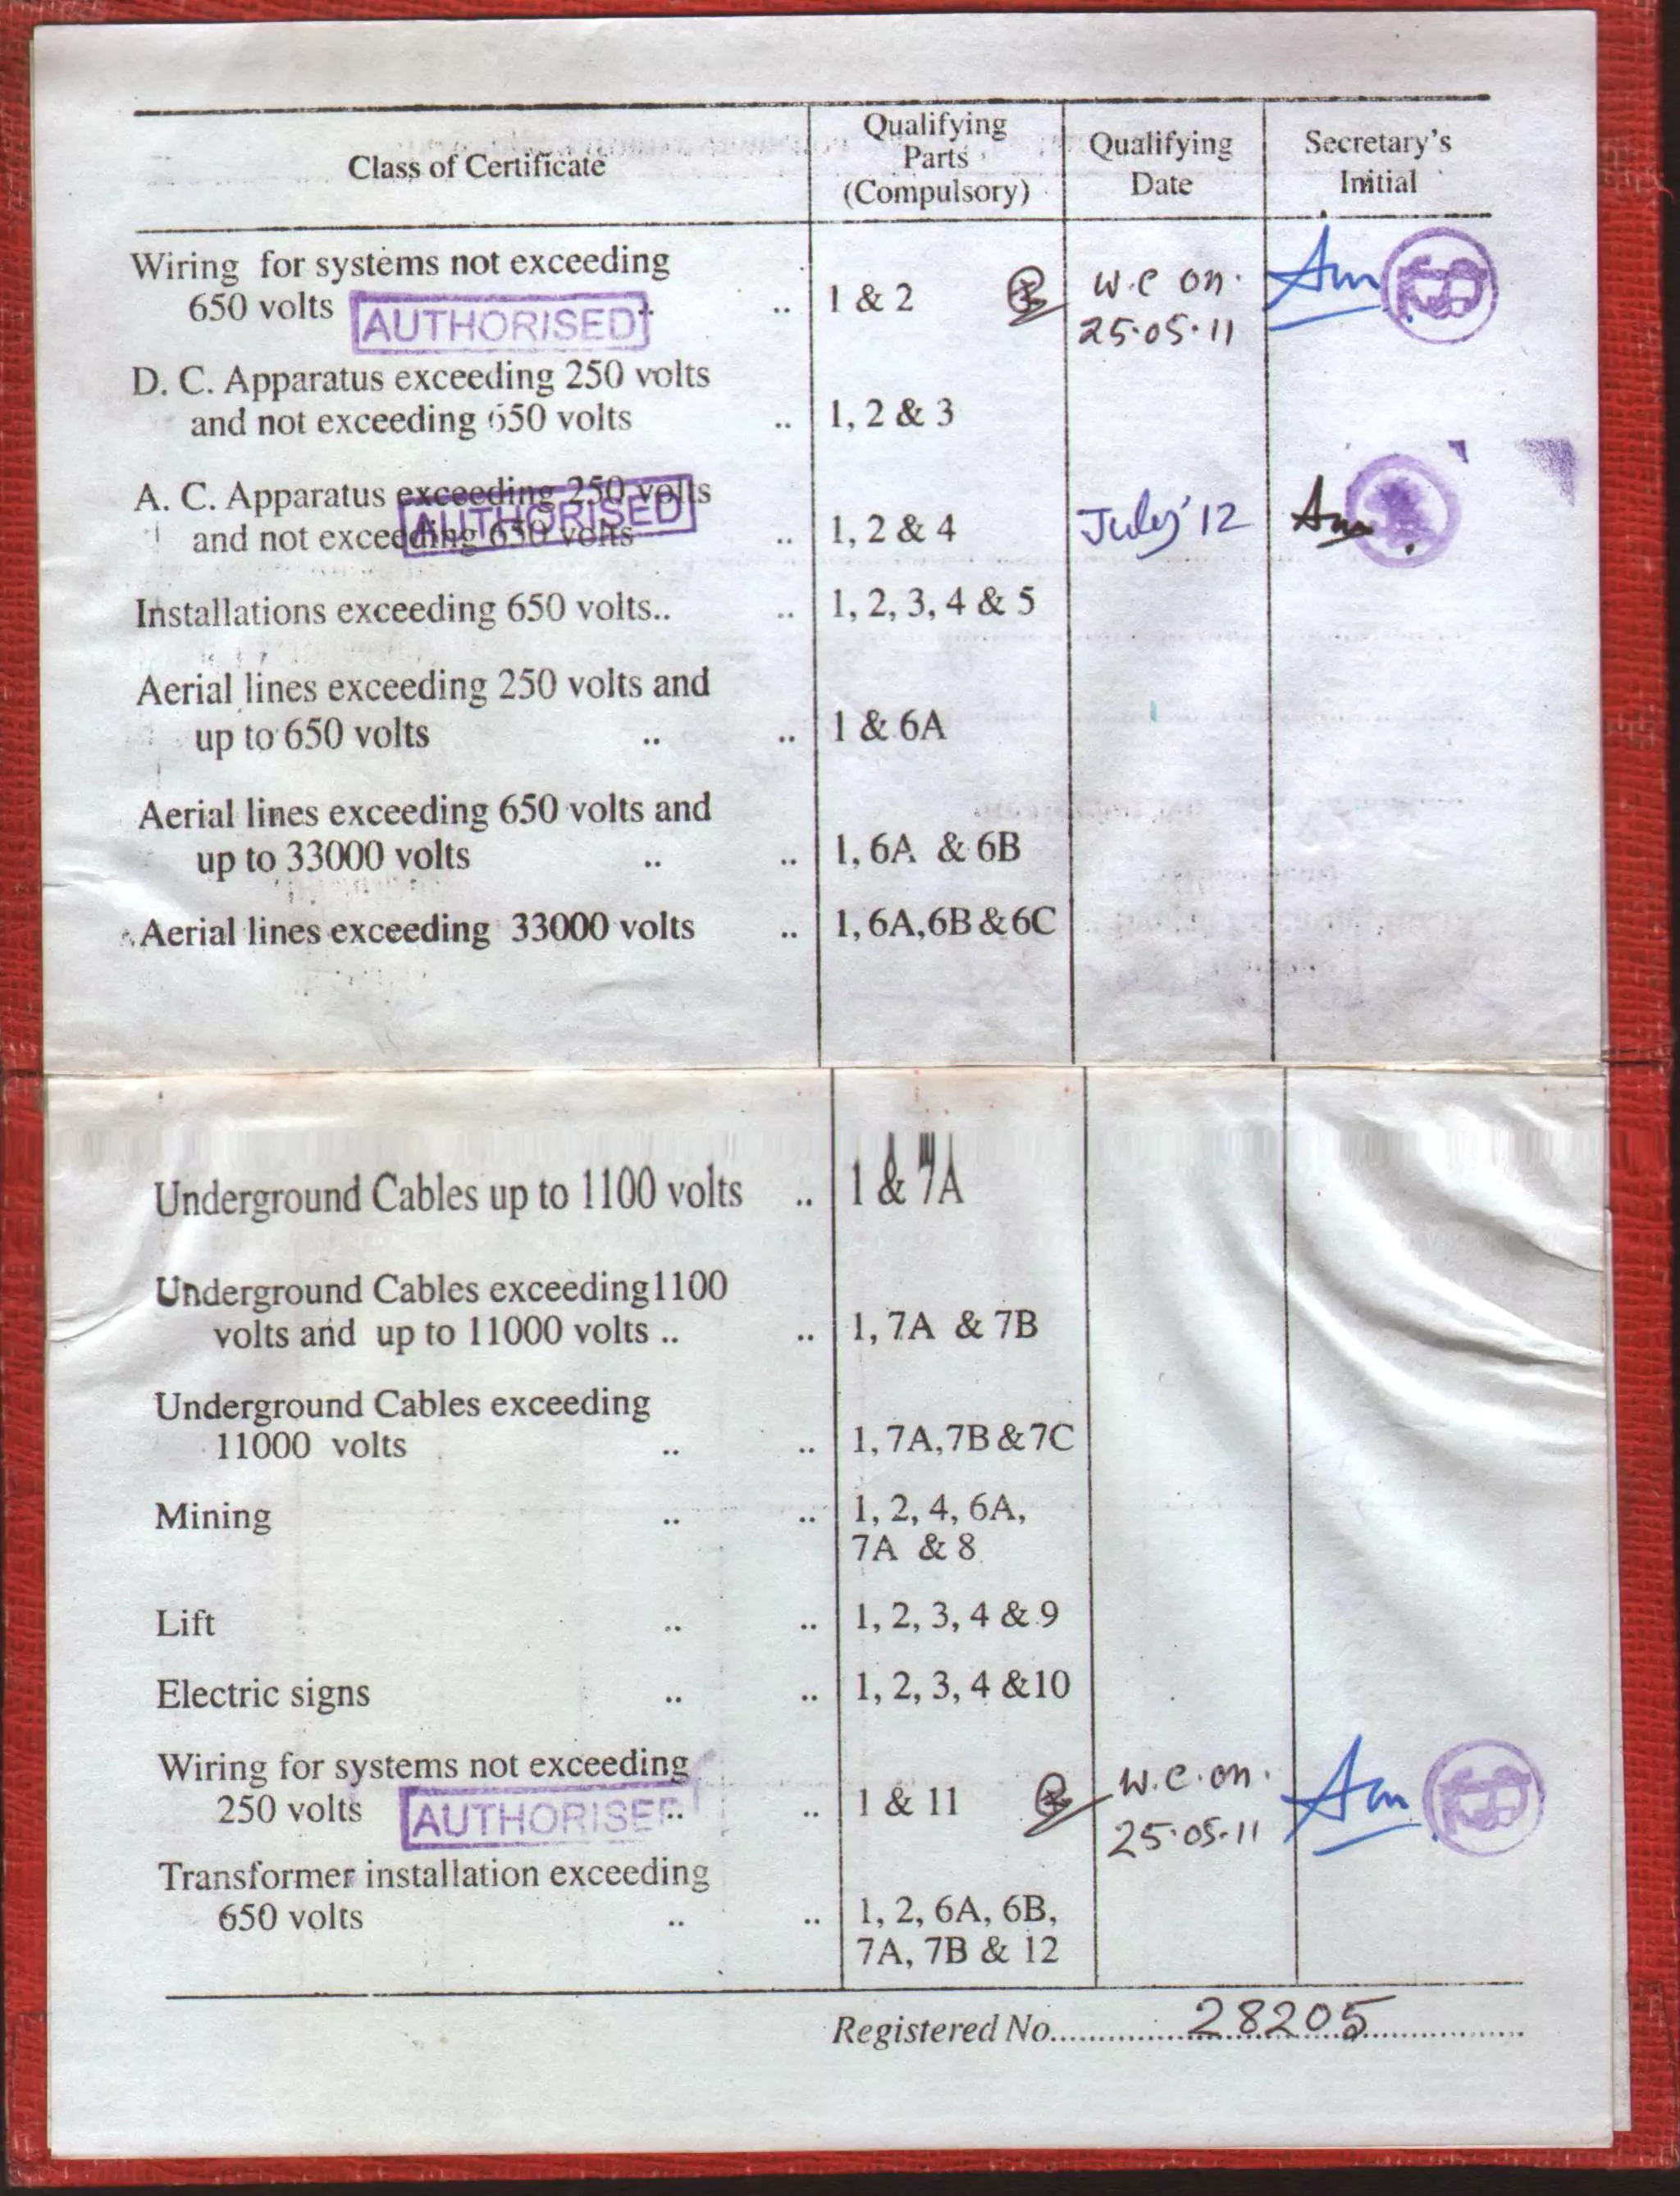 Class of Certificate
Qualifying
Parts
(Compulsory)
Qualifying
Date
Secretary's
Initial
Wiring for systems not exceeding
650 volts .. .. 1 & 2
AUTHORISED
W.C on.
25.05.11
D. C. Apparatus exceeding 250 volts
and not exceeding 650 volts .. 1, 2 & 3
A. C. Apparatus exceeding 250 volts
and not exceeding 650 volts .. 1, 2 & 4 July' 12
AUTHORISED
Installations exceeding 650 volts.. .. 1, 2, 3, 4 & 5
Aerial lines exceeding 250 volts and
up to 650 volts .. .. 1 & 6A
Aerial lines exceeding 650 volts and
up to 33000 volts .. .. 1, 6A & 6B
Aerial lines exceeding 33000 volts .. 1, 6A, 6B & 6C
Underground Cables up to 1100 volts .. 1 & 7A
Underground Cables exceeding 1100
volts and up to 11000 volts .. .. 1, 7A & 7B
Underground Cables exceeding
11000 volts .. .. 1, 7A, 7B & 7C
Mining .. .. 1, 2, 4, 6A,
7A & 8
Lift .. .. 1, 2, 3, 4 & 9
Electric signs .. .. 1, 2, 3, 4 & 10
Wiring for systems not exceeding
250 volts .. .. 1 & 11
AUTHORISED
W.C.on.
25.05.11
Transformer installation exceeding
650 volts .. .. 1, 2, 6A, 6B,
7A, 7B & 12
Registered No. 28205